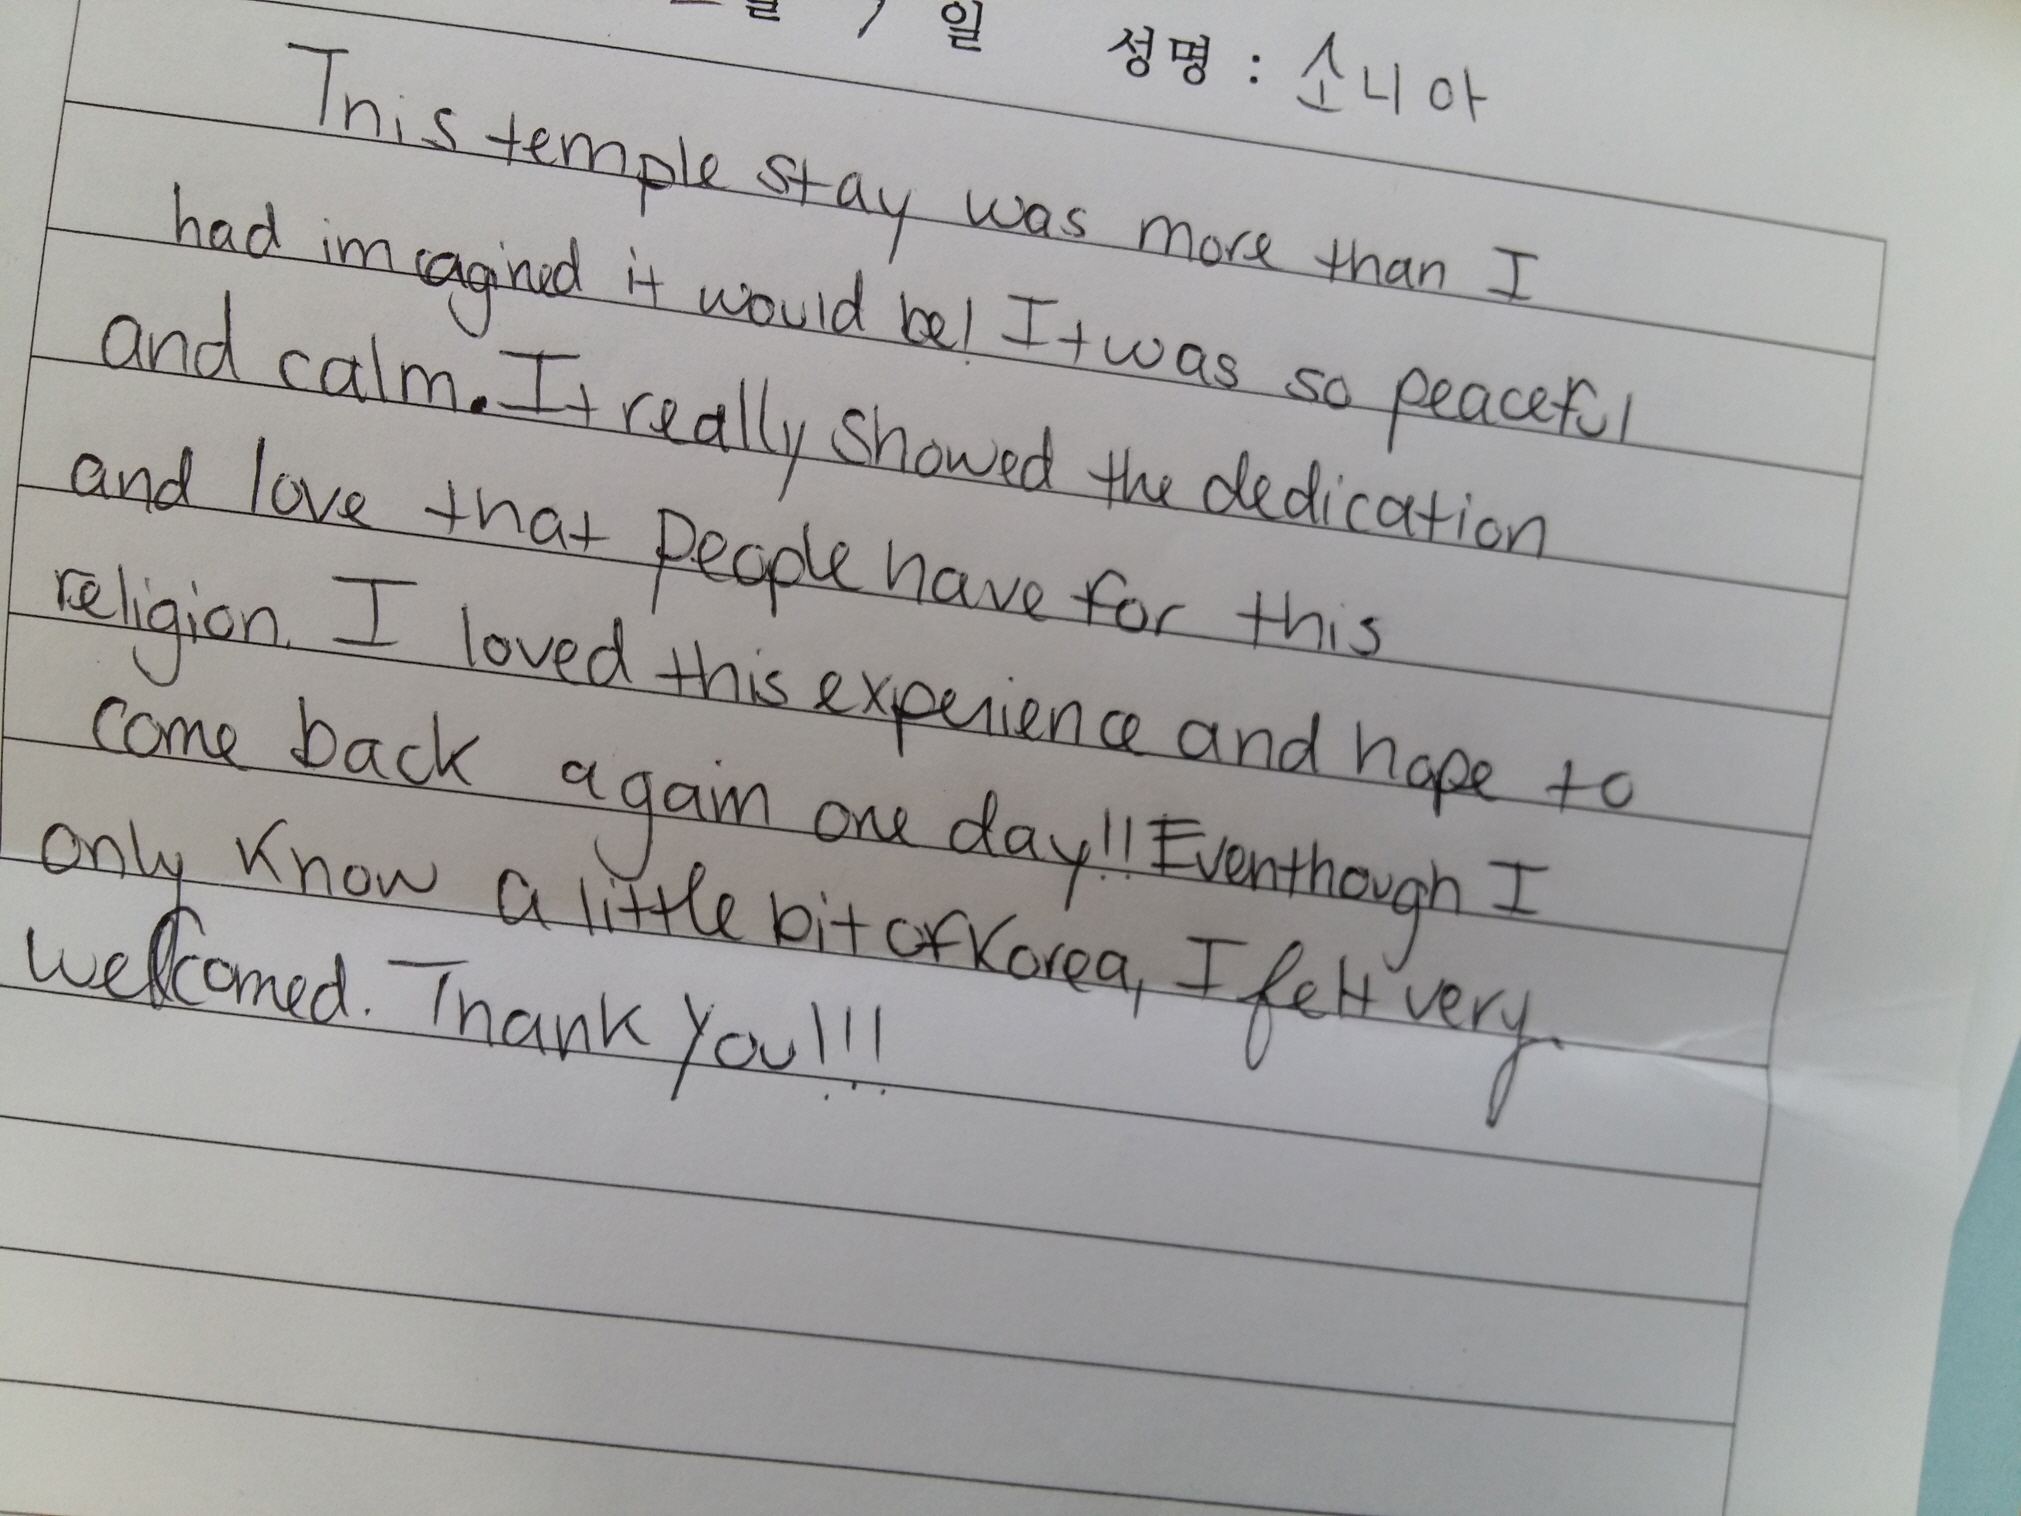 일 성명 : 소니아
This temple stay was more than I
had imagined it would be! It was so peaceful
and calm. It really showed the dedication
and love that people have for this
religion. I loved this experience and hope to
come back again one day!! Eventhough I
only know a little bit of Korea, I felt very
welcomed. Thank you!!!